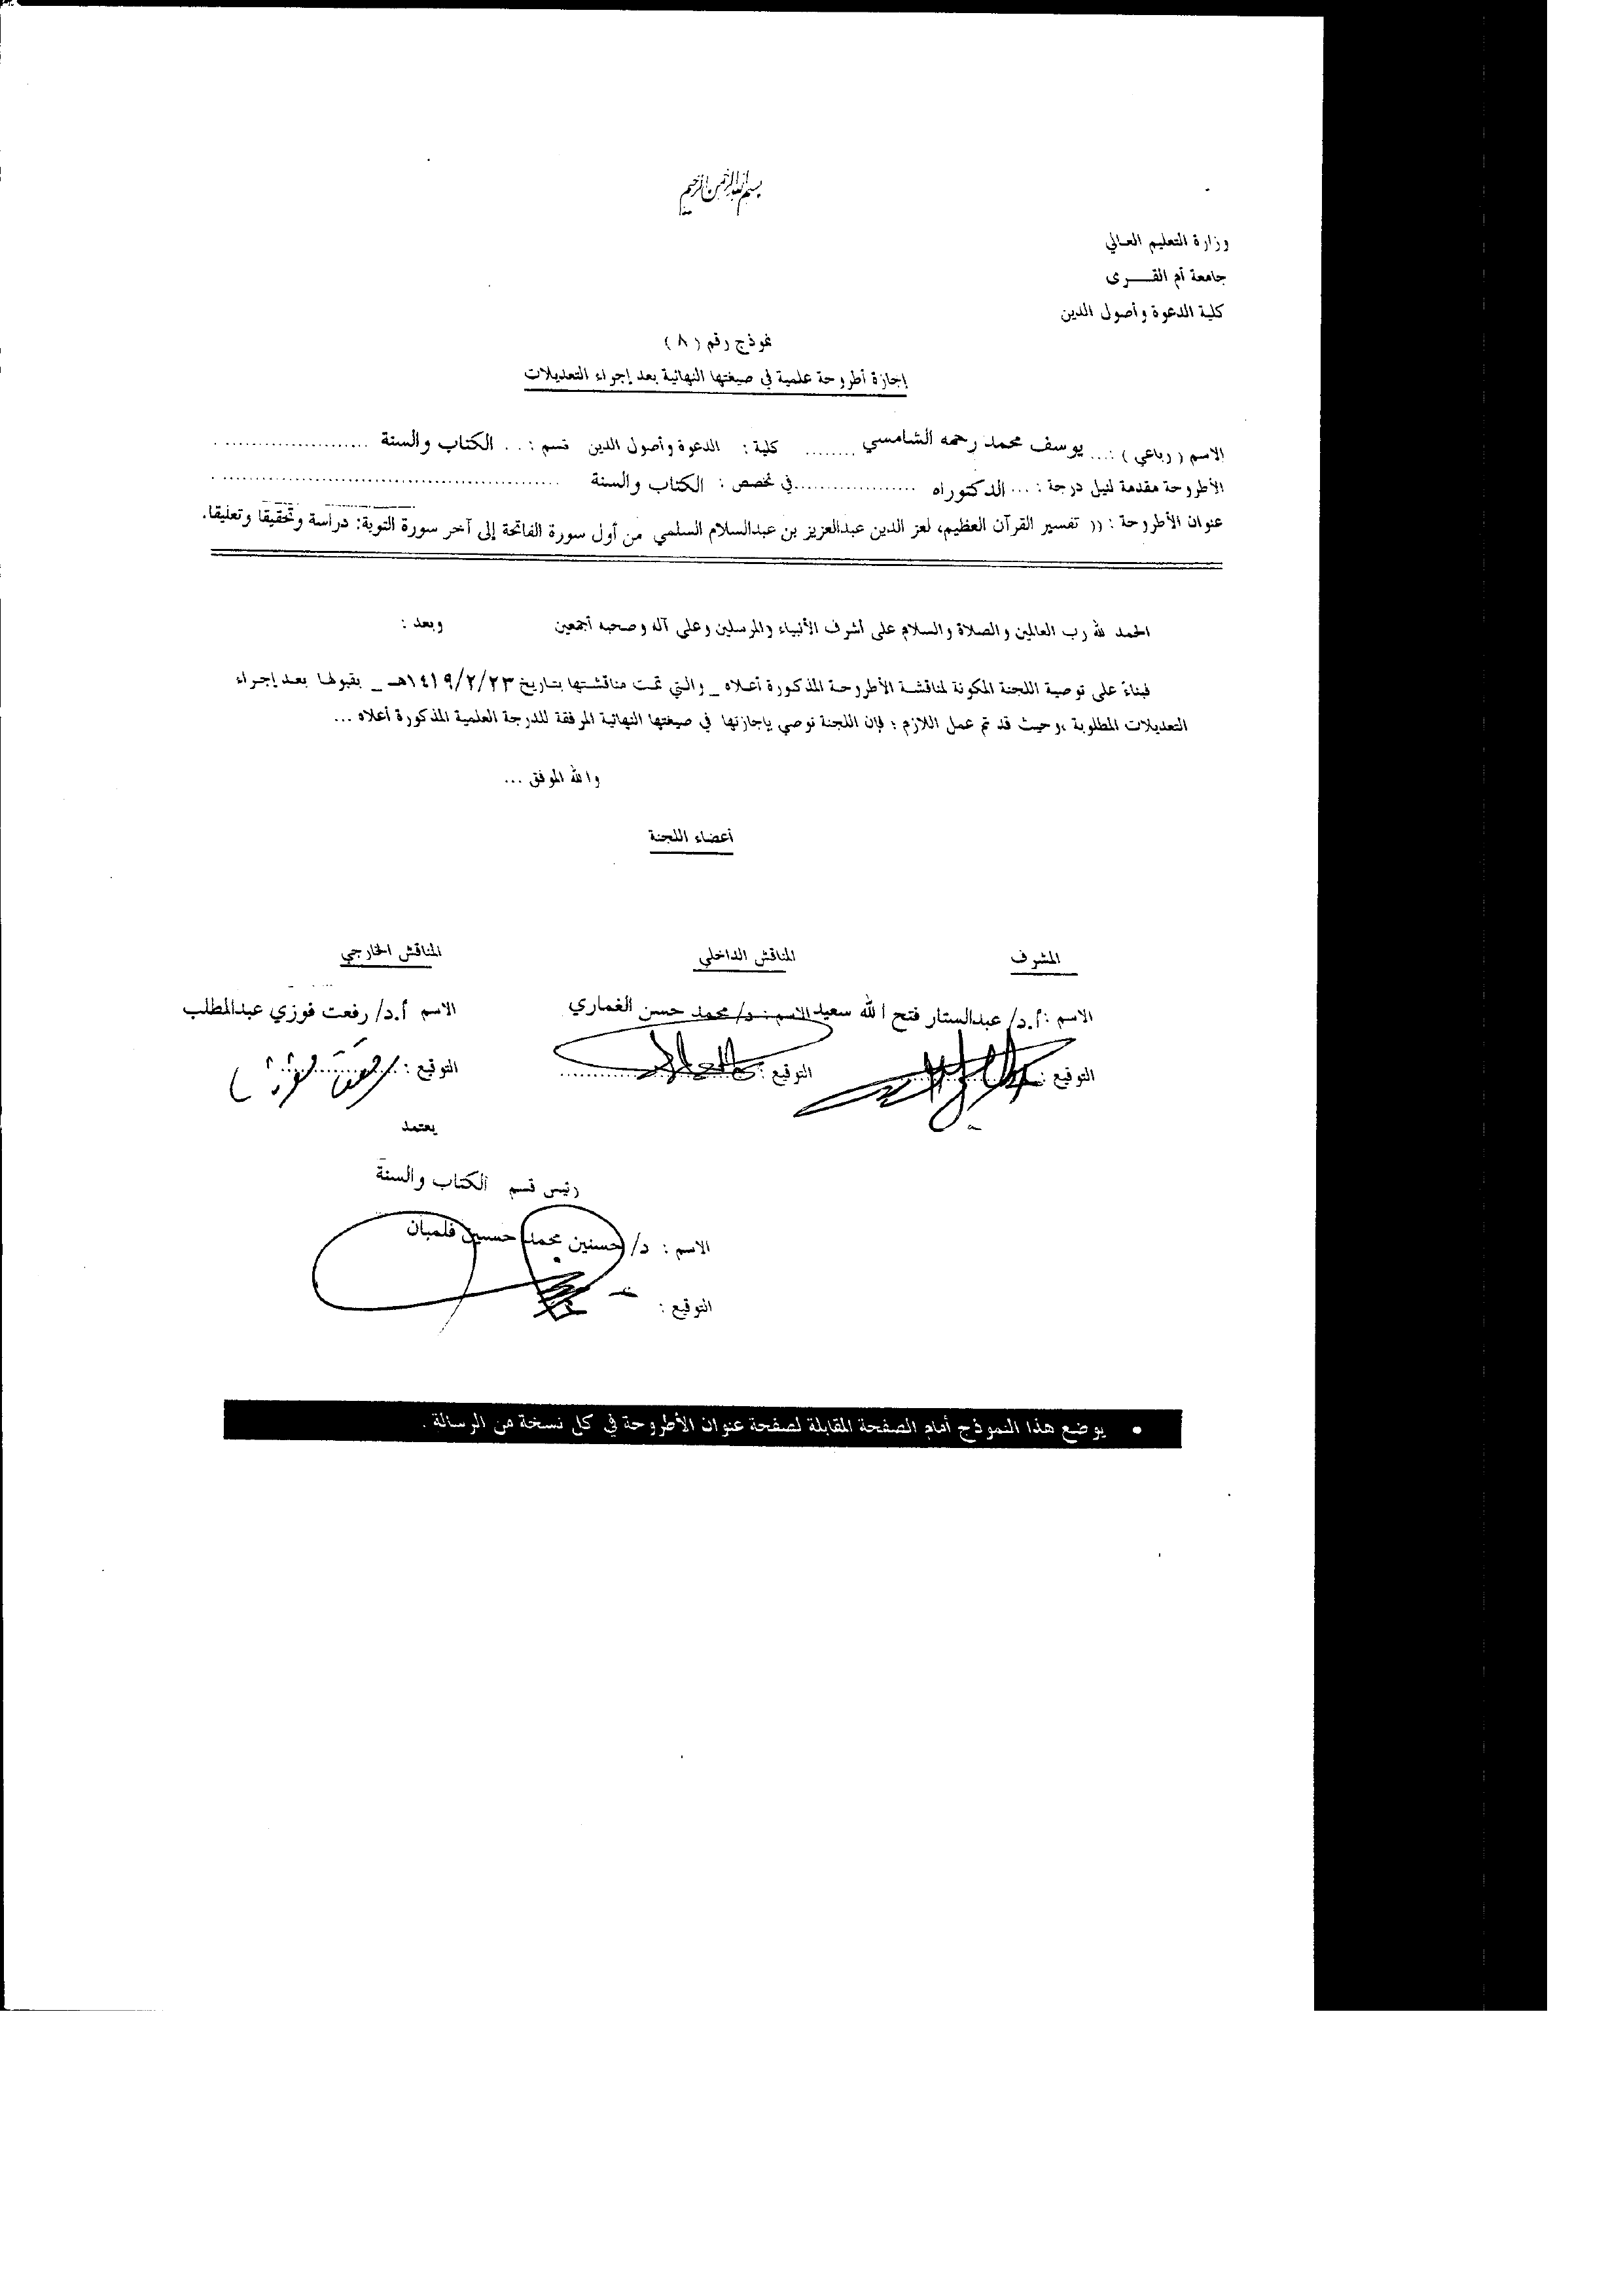 بسم الله الرحمن الرحيم
وزارة التعليم العالي
جامعة أم القــــرى
كلية الدعوة وأصول الدين
نموذج رقم ( ٨ )
إجازة أطروحة علمية في صيغتها النهائية بعد إجراء التعديلات
الاسم ( رباعي ) : ... يوسف محمد رحمه الشامسي ........ كلية : الدعوة وأصول الدين قسم : . . الكتاب والسنة ......................
الأطروحة مقدمة لنيل درجة : ... الدكتوراه ..................في تخصص : الكتاب والسنة ..................................................
عنوان الأطروحة : (( تفسير القرآن العظيم، لعز الدين عبدالعزيز بن عبدالسلام السلمي من أول سورة الفاتحة إلى آخر سورة التوبة: دراسة وتحقيقا وتعليقا.
الحمد لله رب العالمين والصلاة والسلام على أشرف الأنبياء والمرسلين وعلى آله وصحبه أجمعين وبعد :
فبناءً على توصية اللجنة المكونة لمناقشة الأطروحة المذكورة أعلاه _ والتي تمت مناقشتها بتاريخ ١٤١٩/٢/٢٣هـ _ بقبولها بعد إجراء
التعديلات المطلوبة ،وحيث قد تم عمل اللازم ؛ فإن اللجنة توصي بإجازتها في صيغتها النهائية المرفقة للدرجة العلمية المذكورة أعلاه ...
والله الموفق ...
أعضاء اللجنة
المشرف المناقش الداخلي المناقش الخارجي
الاسم : أ.د/ عبدالستار فتح الله سعيد الاسم : د/ محمد حسن الغماري الاسم أ.د/ رفعت فوزي عبدالمطلب
التوقيع : التوقيع : التوقيع :
يعتمد
رئيس قسم الكتاب والسنة
الاسم : د/ حسنين محمد حسين فلمبان
التوقيع :
• يوضع هذا النموذج أمام الصفحة المقابلة لصفحة عنوان الأطروحة في كل نسخة من الرسالة .